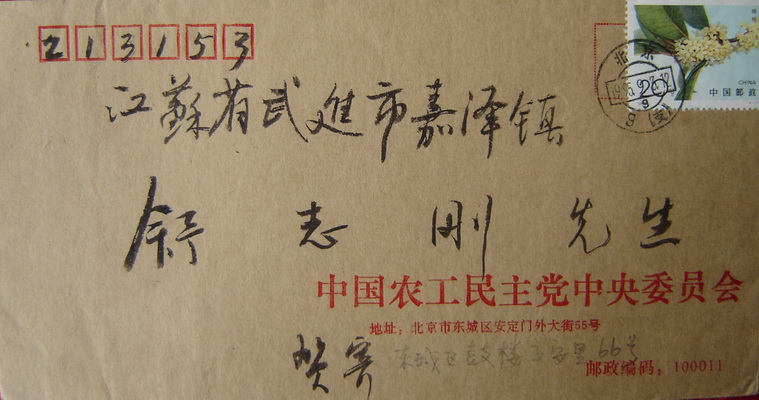 213153
CHINA
中国邮政
北京
江蘇省武進市嘉泽镇
舒志刚先生
中国农工民主党中央委员会
地址：北京市东城区安定门外大街55号
贺寄
东城区鼓楼
66号
邮政编码：100011